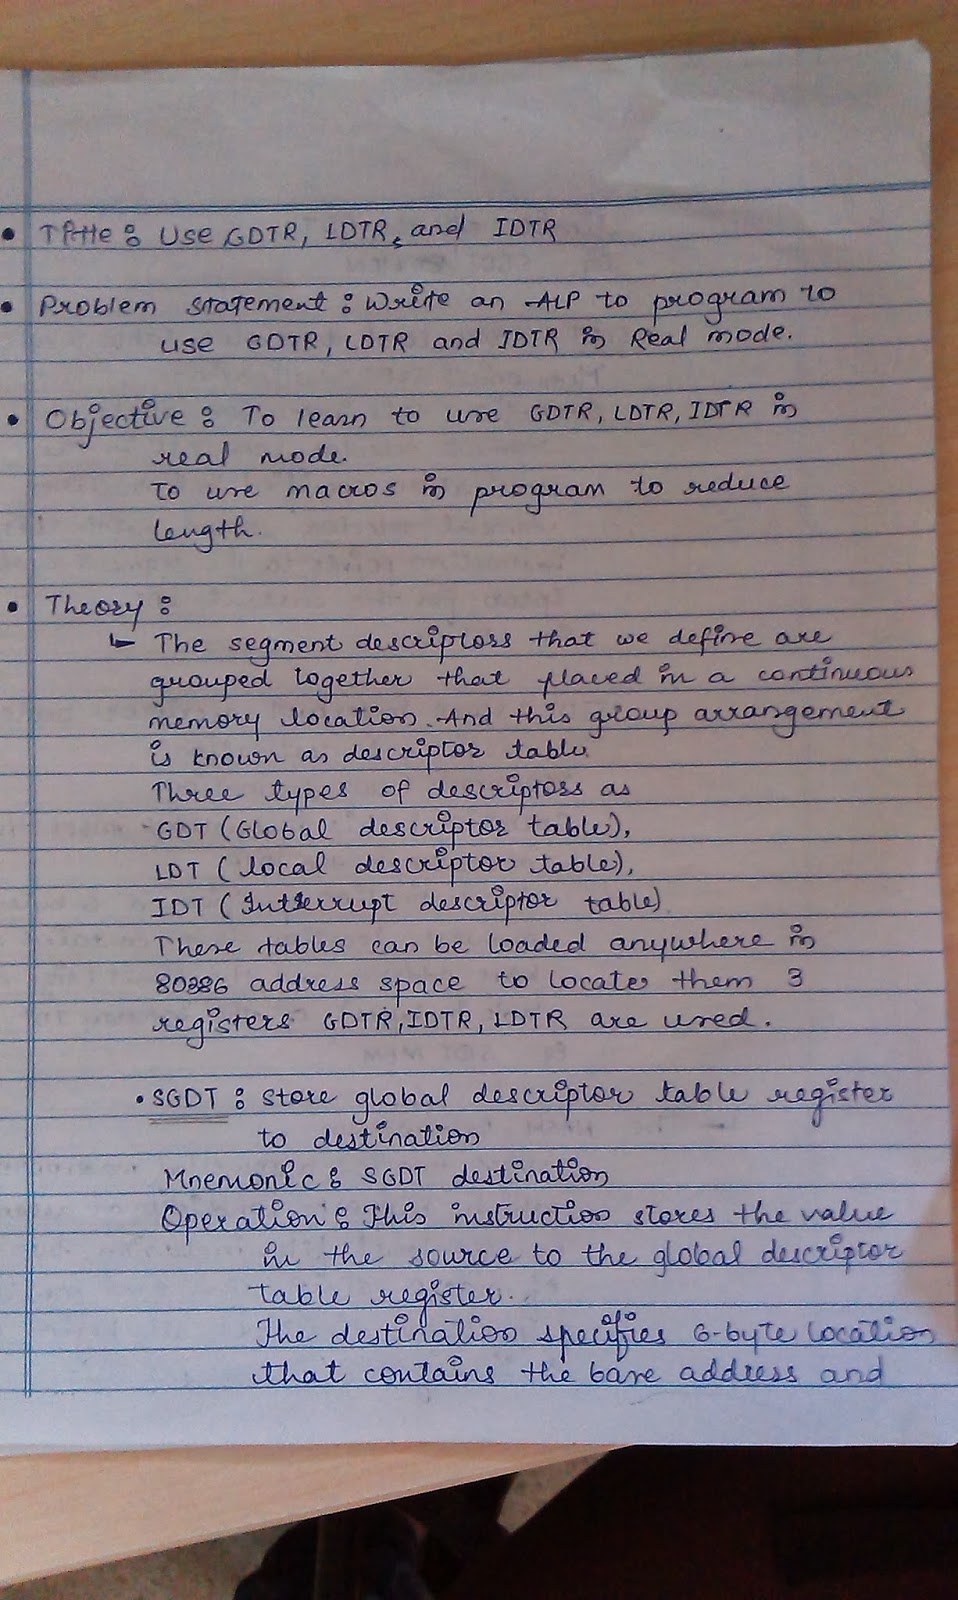 • Title : Use GDTR, LDTR, and IDTR
• Problem statement : Write an ALP to program to
use GDTR, LDTR and IDTR in Real mode.
• Objective : To learn to use GDTR, LDTR, IDTR in
real mode.
To use macros in program to reduce
length.
• Theory :
↳ The segment descriptors that we define are
grouped together that placed in a continuous
memory location. And this group arrangement
is known as descriptor table.
Three types of descriptors as
GDT (Global descriptor table),
LDT (local descriptor table),
IDT (Interrupt descriptor table)
These tables can be loaded anywhere in
80286 address space to locate them 3
registers GDTR, IDTR, LDTR are used.
• SGDT : store global descriptor table register
to destination
Mnemonic : SGDT destination
Operation : This instruction stores the value
in the source to the global descriptor
table register.
The destination specifies 6-byte location
that contains the base address and